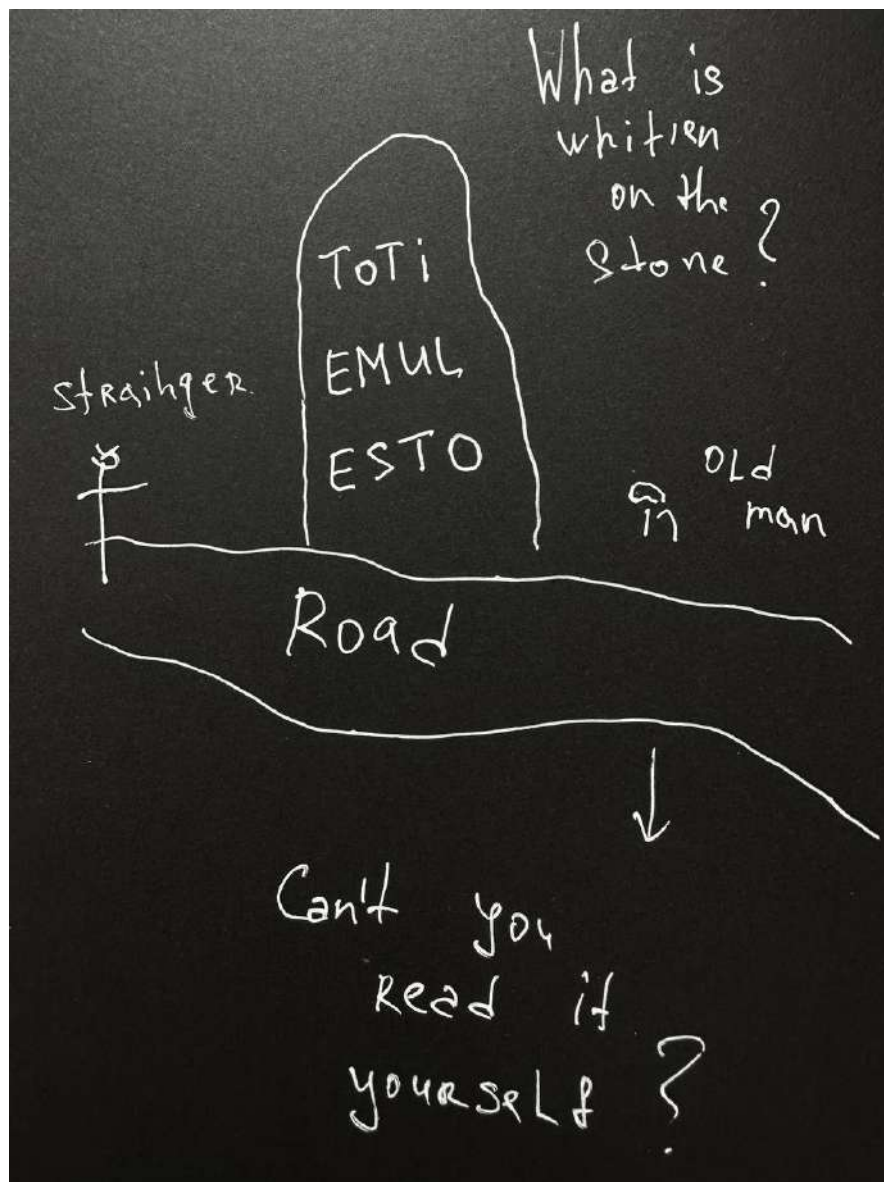 What is
whitten
on the
Stone?
ToTi
EMUL
ESTO
Straihger.
OLd
man
Road
Can't you
Read it
yourseLf?